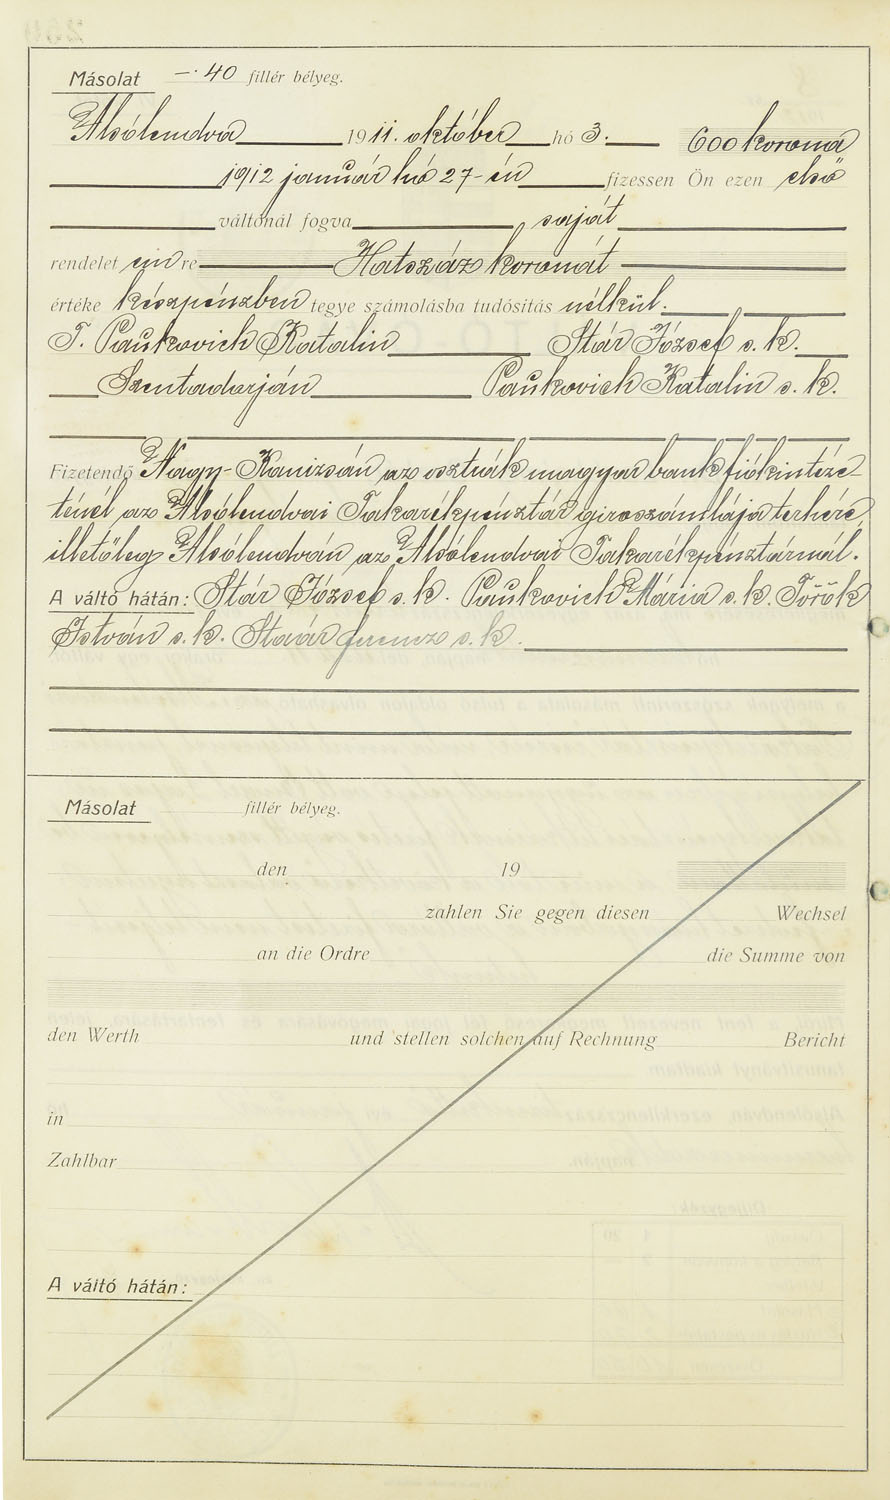 Másolat —·40 fillér bélyeg.
Alsólendva 1911. október hó 3. 600 korona
1912 január hó 27-én fizessen Ön ezen első
váltónál fogva saját
rendeletemre Hatszáz koronát
értéke készpénzben tegye számolásba tudósítás nélkül.
T. Paukovich Katalin Stár József s. k.
Szentadorján Paukovich Katalin s. k.
Fizetendő Nagy-Kanizsán az osztrák magyar bank fiókintéze-
ténél az Alsólendvai Takarékpénztár giroszámlája terhére,
illetőleg Alsólendván az Alsólendvai Takarékpénztárnál.
A váltó hátán: Stár József s. k. Paukovich Mária s. k. Török
István s. k. Staár ferencz s. k.
Másolat fillér bélyeg.
den 19
zahlen Sie gegen diesen Wechsel
an die Ordre die Summe von
den Werth und stellen solchen auf Rechnung Bericht
in
Zahlbar
A váltó hátán: